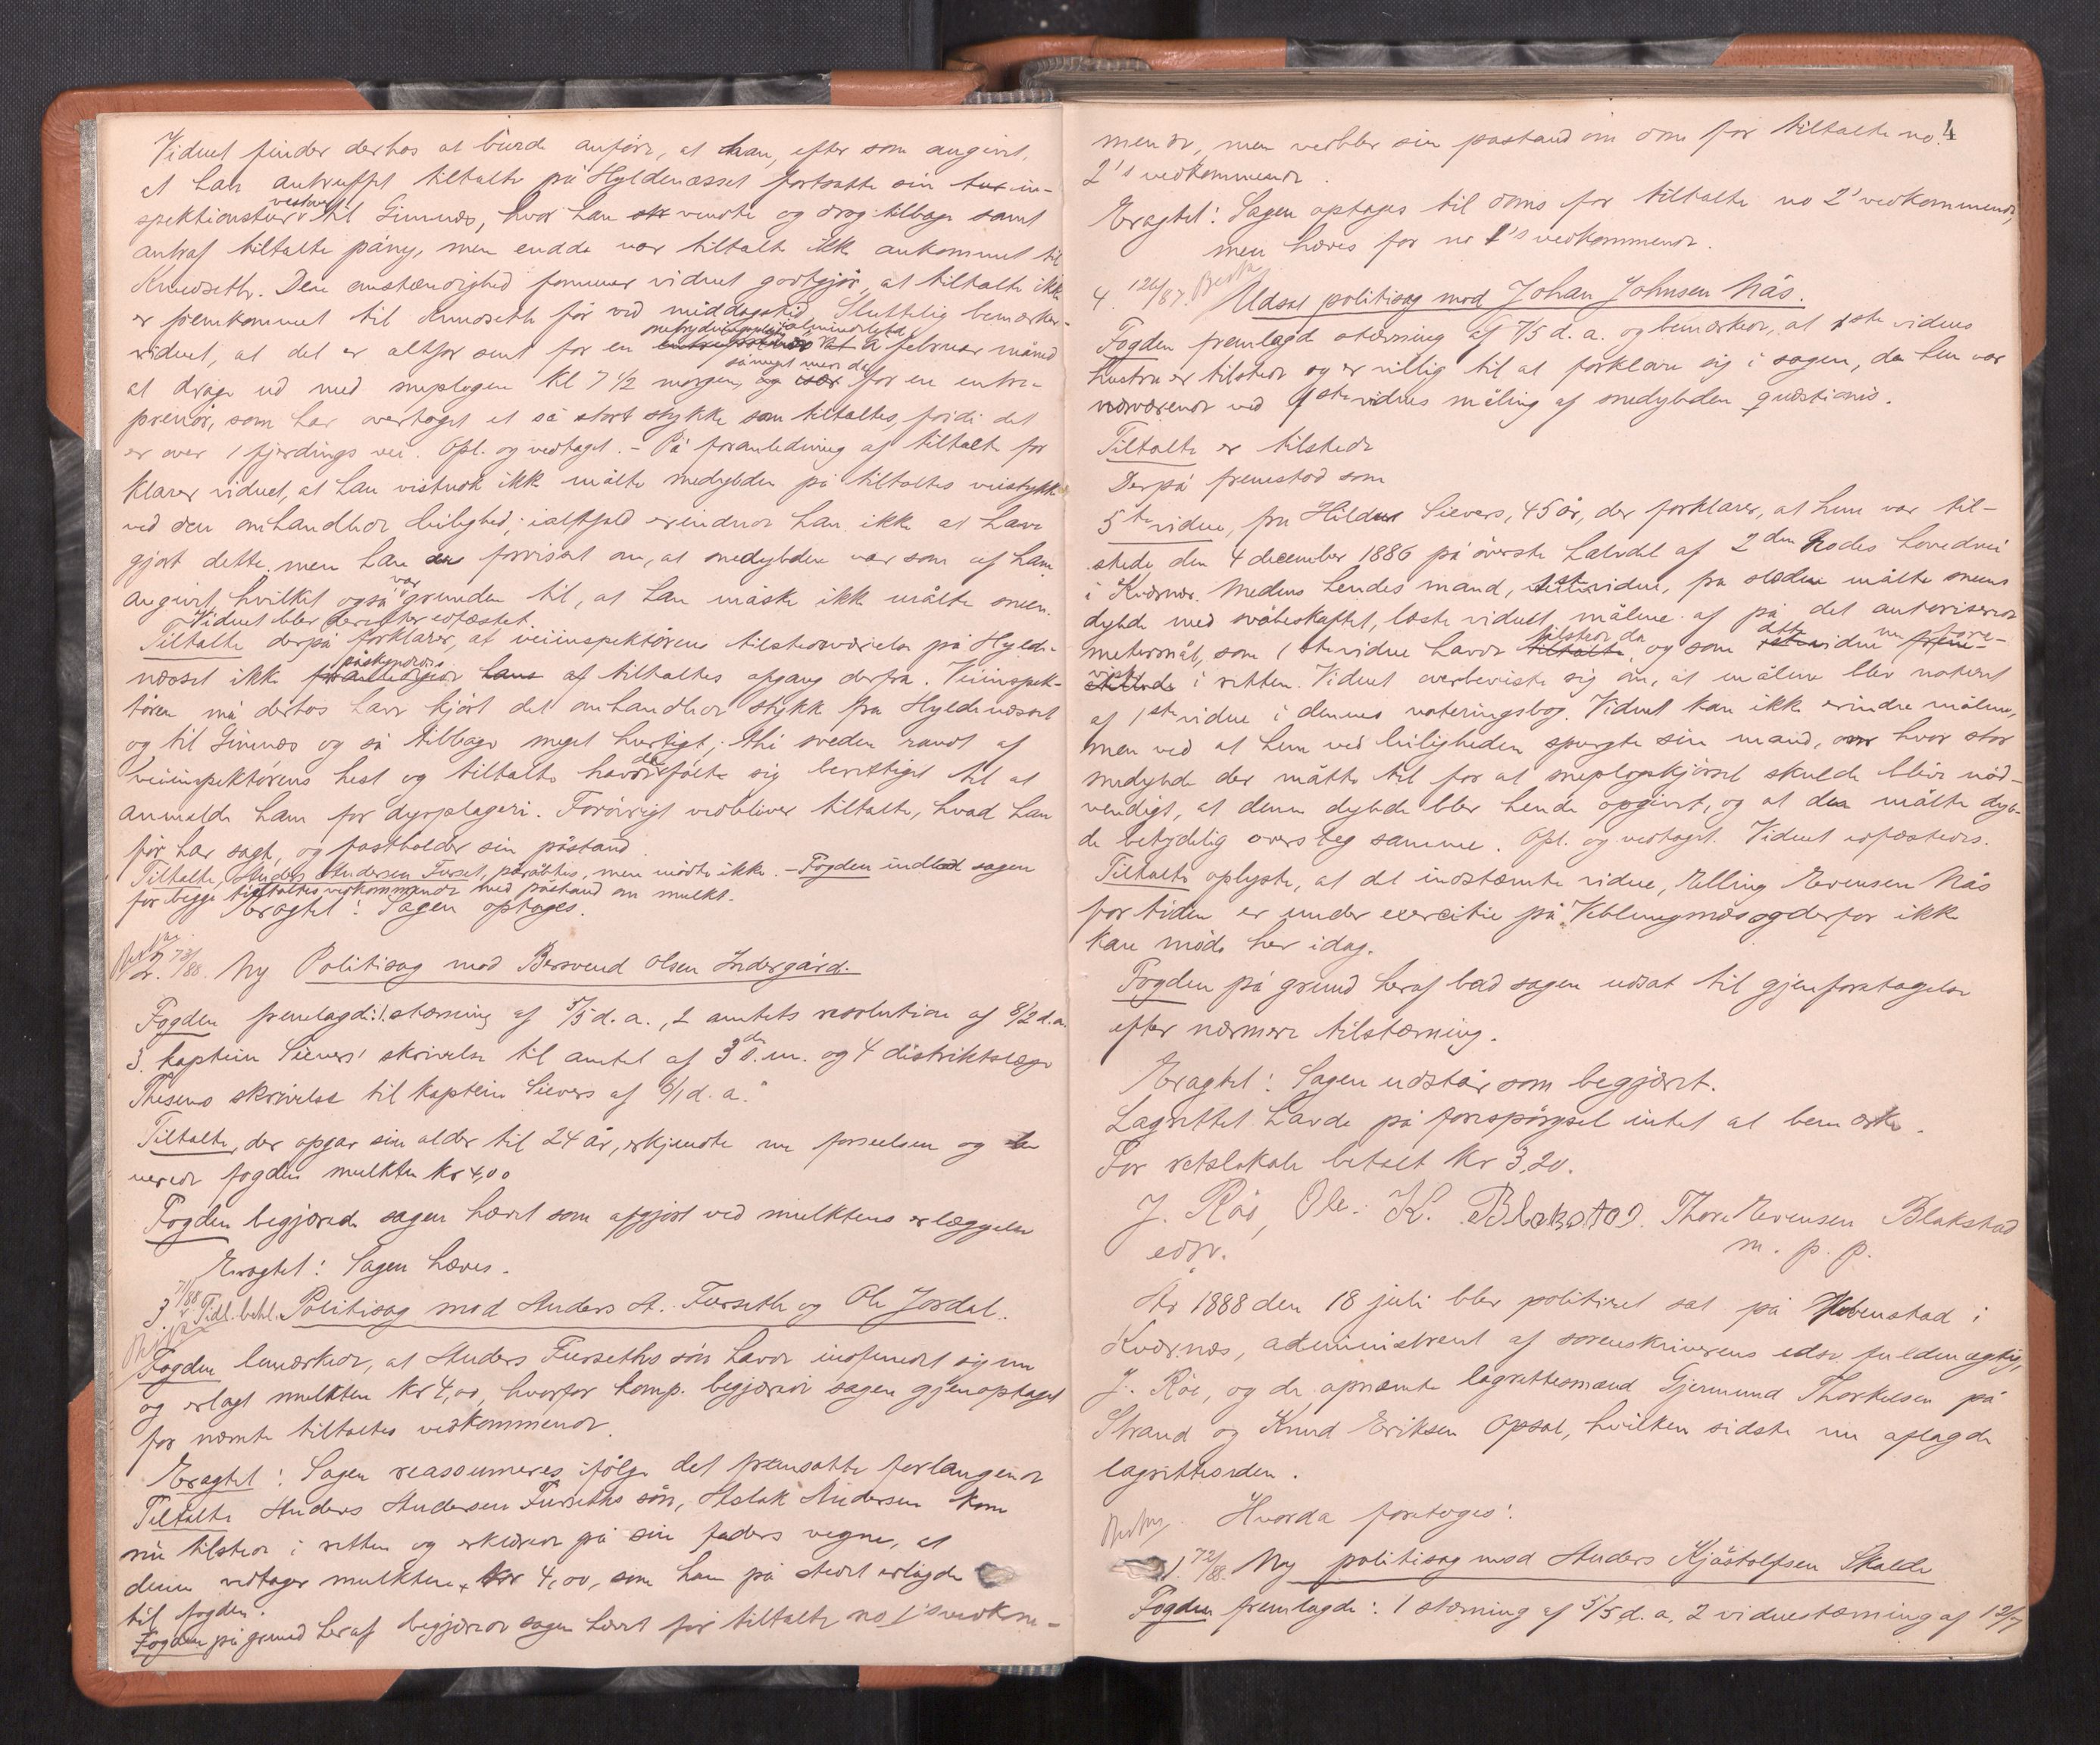 Vidnet finder derhos at burde anføre, at han, efter som angivet,
at han antruffet tiltalte på Hyldenæsset fortsatte sin tur in-
spektionstur vestover til Gimnæs, hvor han vendte og drog tilbage samt
antraf tiltalte påny, men endda var tiltalte ikke ankommet til
Knudseth. Den omstændighed formener vidnet godtgjør, at tiltalte ikke
er fremkommet til Knudseth før ved middagstid. Sluttelig bemærker
vidnet, at det er altfor sent for en almindelig i februar måned
at drage ud med sneplogen kl 7 1/2 morgen, såmeget mer da for en entre-
prenør, som har overtaget et så stort stykke som tiltaltes, fordi det
er over 1 fjerdings vei. Opl. og vedtaget. - På foranledning af tiltalte for
klarer vidnet, at han vistnok ikke målte snedybden på tiltaltes veistykke
ved den omhandlede leilighed; ialfald erindrer han ikke at have
gjort dette, men han er forvisset om, at snedybden var som af ham
angivet, hvilket også var grunden til, at han måske ikke målte sneen.
Vidnet blev derefter edfæstet.
Tiltalte derpå forklarer, at veiinspektørens tilstedeværelse på Hylde-
næsset ikke påskyndede af tiltaltes afgang derfra. Veiinspek-
tøren må derhos have kjørt det omhandlede stykke fra Hyldenæsset
og til Gimnæs og så tilbage meget hurtigt, thi sveden randt af
veiinspektørens hest og tiltalte havde følte sig berettiget til at
anmelde ham for dyrplageri. Forøvrigt vedbliver tiltalte, hvad han
før har sagt, og fastholder sin påstand.
Tiltalte, Anders Andersen Furset, påråbtes, men mødte ikke. - Fogden indlod sagen
for begge tiltaltes vedkommende med påstand om mulkt.
Eragtet: Sagen optages.
2. 73/88. Ny Politisag mod Bersvend Olsen Indergård.
Fogden fremlagde: 1. stævning af 5/5 d. a., 2 amtets resolution af 8/2 d. a.
3. kaptein Sievers' skrivelse til amtet af 3de s. m. og 4 distriktslæge
Thesens skrivelse til kaptein Sievers af 6/1 d. a.
Tiltalte, der opgav sin alder til 24 år, erkjendte nu forseelsen og le
verede fogden mulkten kr 4,00
Fogden begjærede sagen hævet som afgjort ved mulktens erlæggelse
Eragtet: Sagen hæves.
3. 71/88 Tidl. behl. Politisag mod Anders A. Furseth og Ole Jordal.
Fogden bemærkede, at Anders Furseths søn havde indfundet sig nu
og erlagt mulkten kr 4,00, hvorfor komp. begjærede sagen gjenoptaget
for nævnte tiltaltes vedkommende.
Eragtet: Sagen reassumeres ifølge det fremsatte forlangende
Tiltalte Anders Andersen Furseths søn, Aslak Andersen kom
nu tilstede i retten og erklærede på sin faders vegne, at
denne vedtager mulkten, kr 4,00, som han på stedet erlagde
til fogden.
Fogden på grund heraf begjærede sagen hævet for tiltalte no 1's vedkom-
4
mende, men vedblev sin påstand om dom for tiltalte no.
2's vedkommende.
Eragtet: Sagen optages til doms for tiltalte no 2' vedkommende,
men hæves for no 1's vedkommende.
4. 126/87. Udsat politisag mod Johan Johnsen Nås.
Fogden fremlagde stævning af 7/5 d. a. og bemærkede, at 1ste vidnes
hustru er tilstede og er villig til at forklare sig i sagen, da hun var
nærværende ved 1ste vidnes måling af snedybden quæstionis.
Tiltalte er tilstede
Derpå fremstod som
5te vidne, fru Hildur Sievers, 45 år, der forklarer, at hun var til-
stede den 4 december 1886 på øverste halvdel af 2den Rodes hovedvei
i Kværnæs. Medens hendes mand, 1ste vidne, fra slæden målte sneens
dybde med svøbeskaftet, læste vidnet målene af på det autoriserede
metermål, som 1ste vidne havde tilstede da, og som dette vidne nu fore-
viste i retten. Vidnet overbeviste sig om, at målene blev noteret
af 1ste vidne i dennes noteringsbog. Vidnet kan ikke erindre målene,
men ved at hun ved leiligheden spurgte sin mand, om hvor stor
snedybde der måtte til for at sneplogskjørsel skulde blive nød-
vendigt, at denne dybde blev hende opgivet, og at den målte dyb-
de betydelig oversteg samme. Opl. og vedtaget. Vidnet edfæstedes.
Tiltalte oplyste, at det indstævnte vidne, Elling Evensen Nås
for tiden er under exercitie på Veblungsnæs og derfor ikke
kan møde her idag.
Fogden på grund heraf bad sagen udsat til gjenforetagelse
efter nærmere tilstævning.
Eragtet: Sagen udstår som begjæret.
Lagrettet havde på forespørgsel intet at bemærke.
For retslokale betalt kr 3,20.
J. Röe, Ole. K. Blakstad. Thore Evensen Blakstad
edsv. m. p. p.
År 1888 den 18 juli blev politiret sat på Høbenstad i
Kværnæs, administreret af sorenskriverens edsv. fuldmægtig,
J. Röe, og de opnævnte lagrettesmænd Gjermund Thorkelsen på
Strand og Knud Eriksen Opsal, hvilken sidste nu aflagde
lagretteseden.
Hvorda foretoges:
1. 72/88. Ny politisag mod Anders Kjøstolfsen Skalde
Fogden fremlagde: 1 stævning af 5/5 d. a, 2 vidnestævning af 12/7